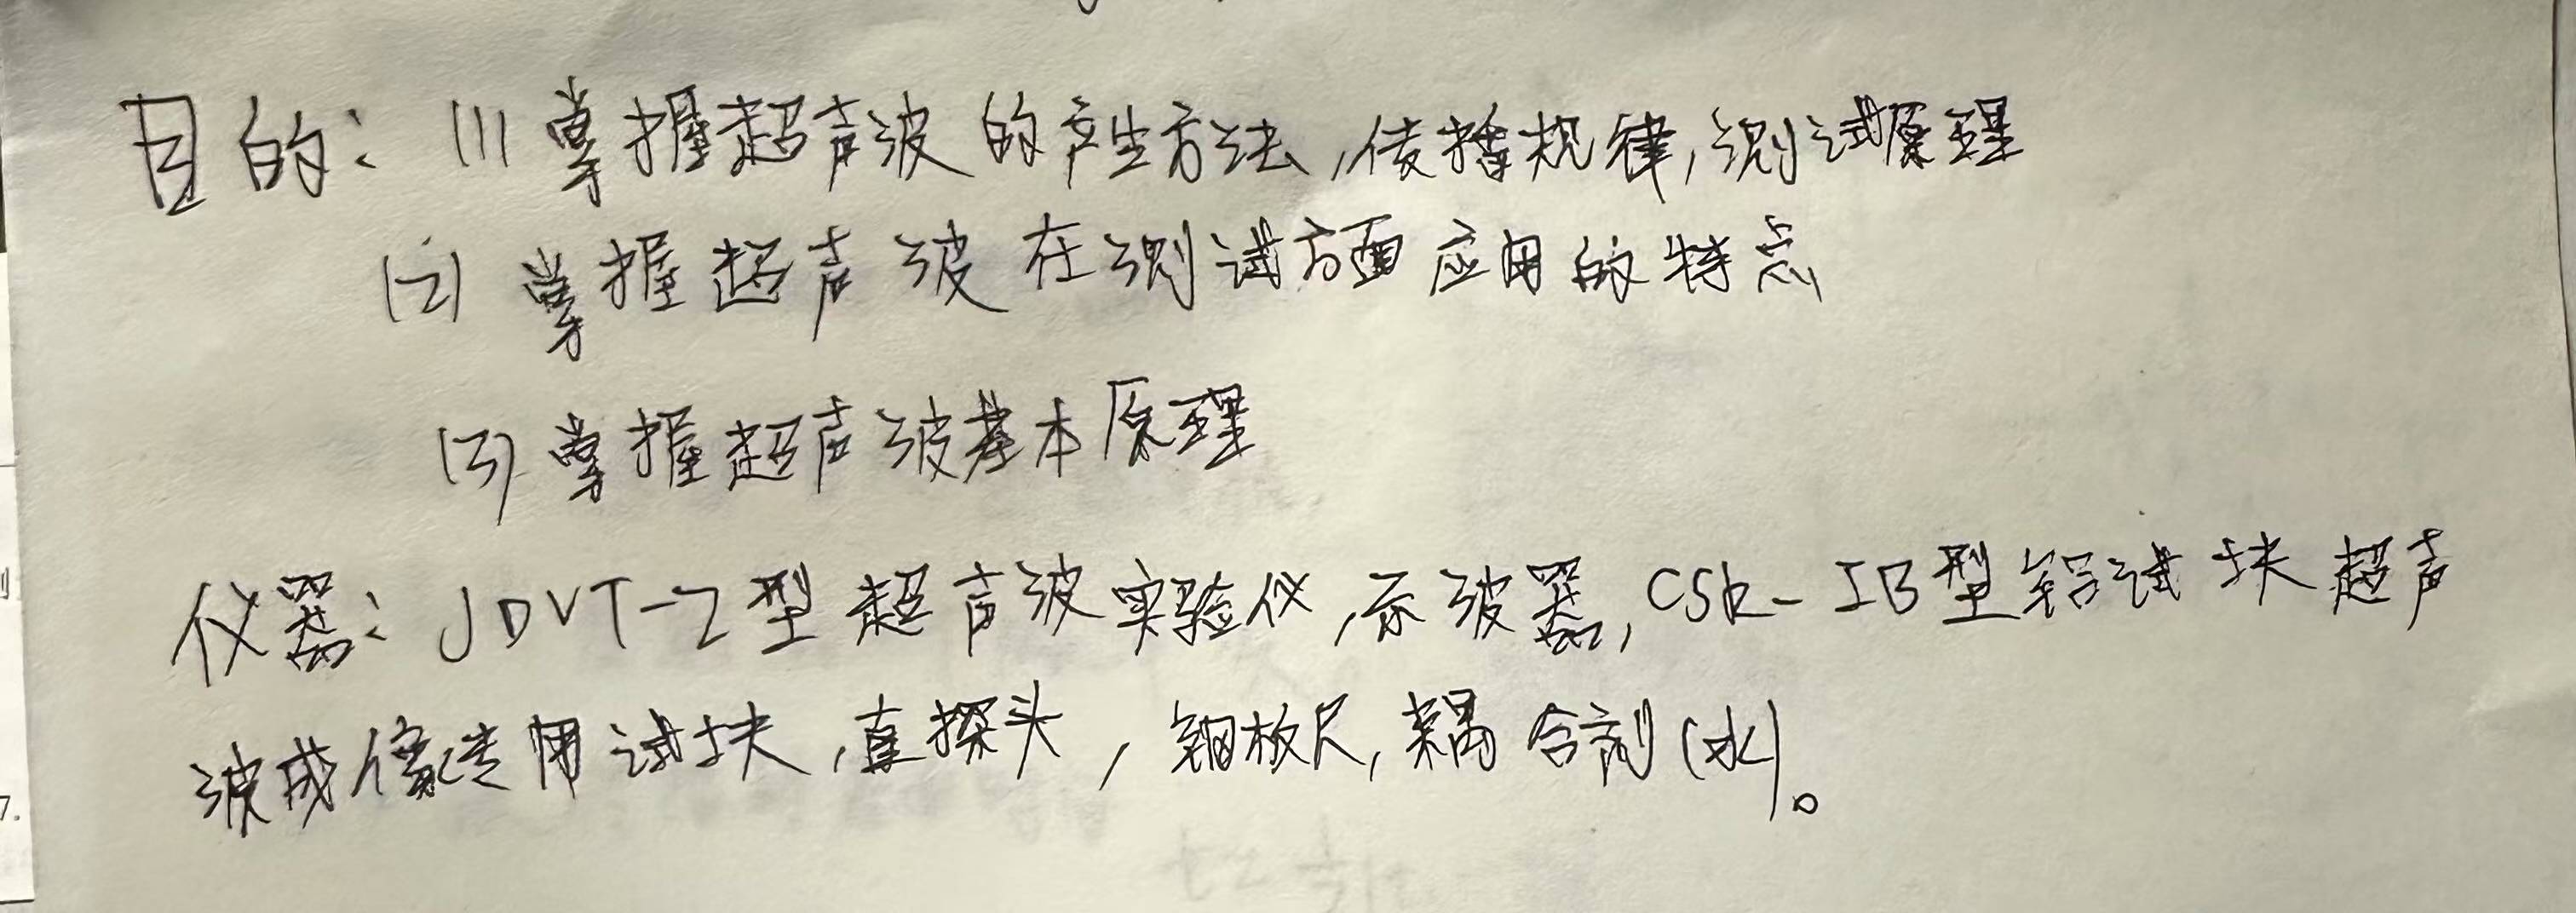 目的：(1)掌握超声波的产生方法,传播规律,测试原理
(2)掌握超声波在测试方面应用的特点
(3)掌握超声波基本原理
仪器：JDVT-2型超声波实验仪,示波器,CSk-IB型铝试块超声
波成像专用试块,直探头,钢板尺,耦合剂(水)。